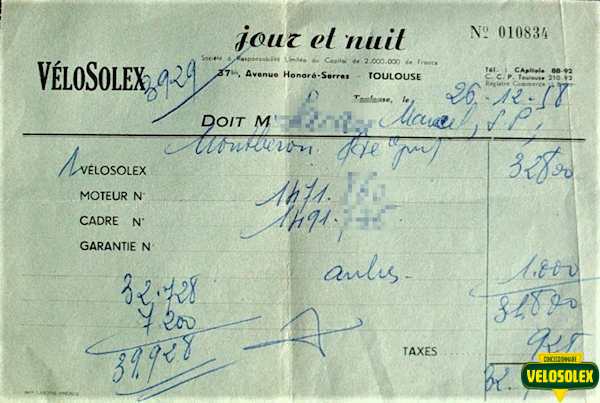 jour et nuit
Nº 010834
Société à Responsabilité Limitée du Capital de 2.000.000 de Francs
VÉLOSOLEX
37bis, Avenue Honoré-Serres - TOULOUSE
Tél. : CApitole 88-92
C. C. P. Toulouse 210.92
Registre Commerce
3929
Toulouse, le 26.12.58
DOIT M Marcel, S.P,
Montberon
1 VÉLOSOLEX 32800
MOTEUR Nº 1471.
CADRE Nº 1491.
GARANTIE Nº
1.000
32.728
31.800
7200
TAXES 928
39.928
32.
CONCESSIONNAIRE
VELOSOLEX